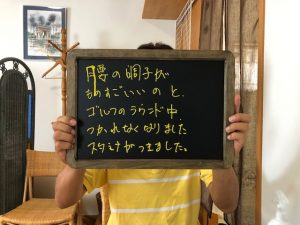 腰の調子が
ものすごいいのと、
ゴルフのラウンド中
つかれなくなりました
スタミナがつきました。